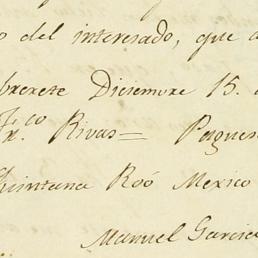 o del interesado, que a
brerete Diciemure 15. d
Fr.co Rivas= Pagues
Quintana Roó Mexico
Manuel Garcia